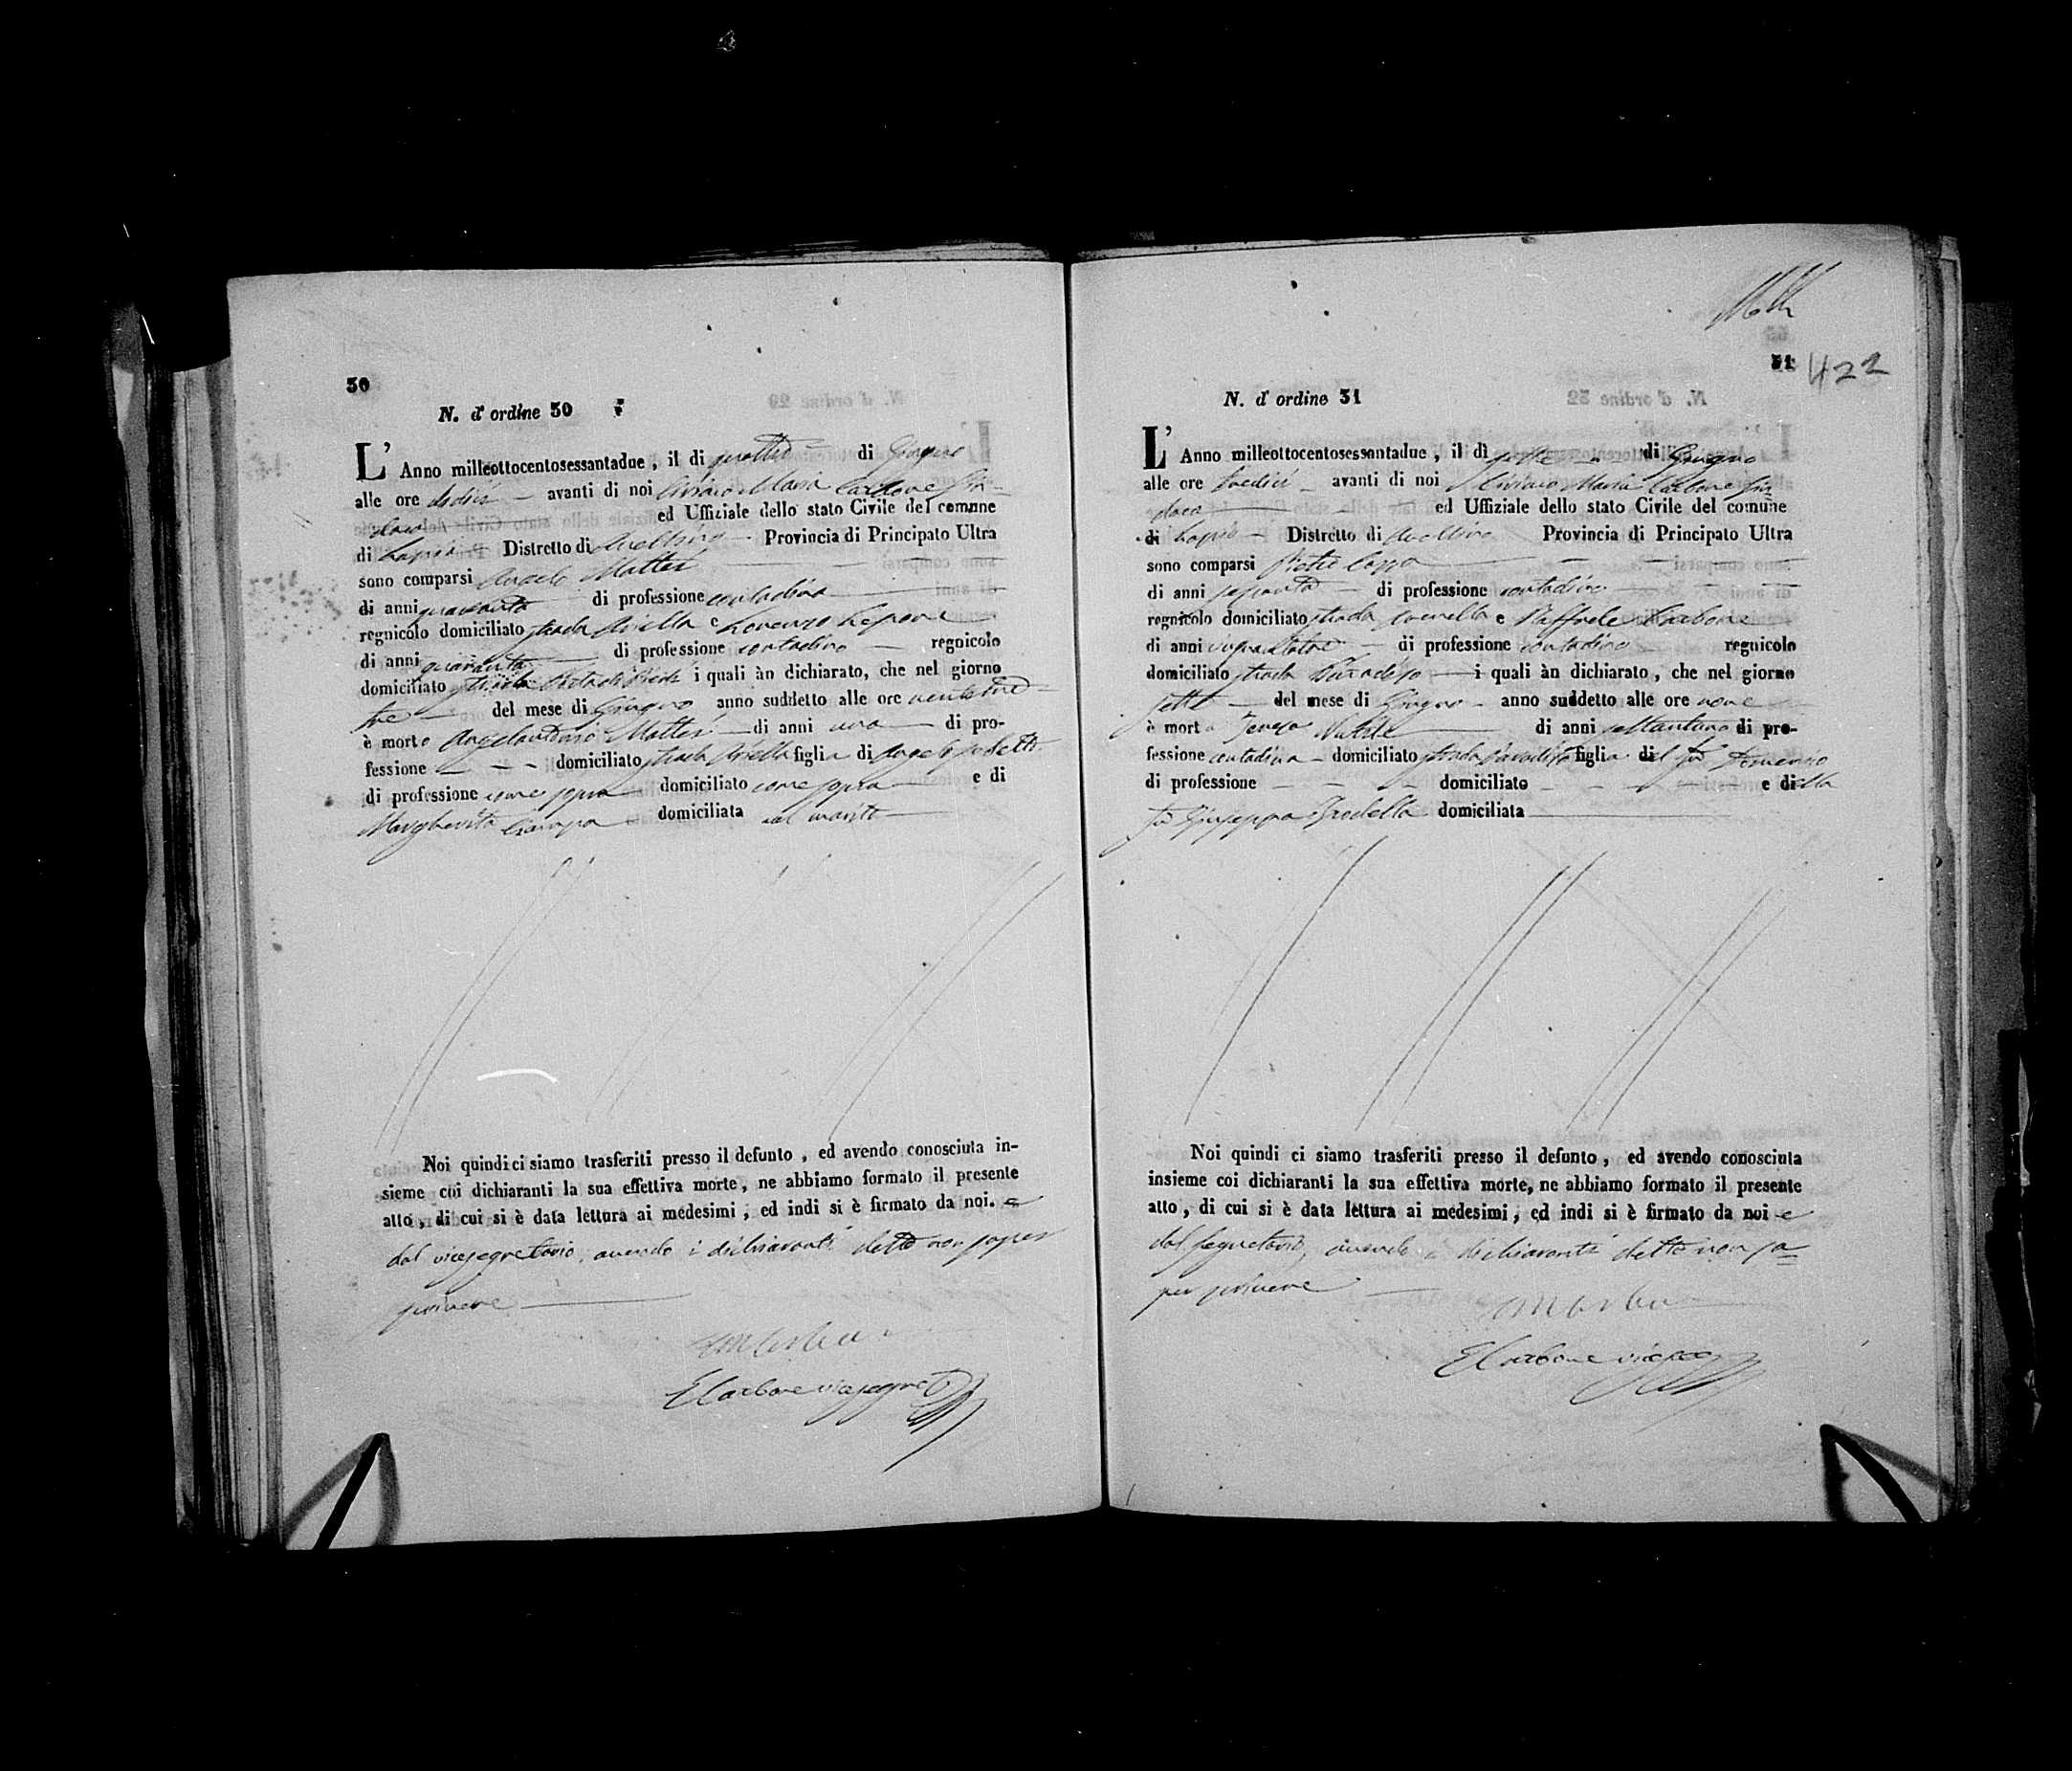 30
N. d' ordine 30
L' Anno milleottocentosessantadue, il di quattro di Giugno
alle ore dodici — avanti di noi Ciriaco Maria Carbone Sin-
daco — ed Uffiziale dello stato Civile del comune
di Lapio — Distretto di Avellino — Provincia di Principato Ultra
sono comparsi Angelo Mattei
di anni quaranta — di professione contadino —
regnicolo domiciliato strada Ariella e Lorenzo Lepore
di anni quaranta — di professione contadino — regnicolo
domiciliato strada i quali àn dichiarato, che nel giorno
tre — del mese di Giugno anno suddetto alle ore ventitre —
è morto Angelantonio Mattei — di anni uno — di pro-
fessione — - - domiciliato strada Ariella figlio di Angelo sudetto
di professione come sopra domiciliato come sopra — e di
Margherita Ciampa — domiciliata col marito —
Noi quindi ci siamo trasferiti presso il defunto, ed avendo conosciuta in-
sieme coi dichiaranti la sua effettiva morte, ne abbiamo formato il presente
atto, di cui si è data lettura ai medesimi, ed indi si è firmato da noi. e
dal vicesegretario, avendo i dichiaranti detto non saper
scrivere —
E Carbone vicesegret
31
422
N. d' ordine 31
L' Anno milleottocentosessantadue, il dì sette — di Giugno
alle ore tredici — avanti di noi Ciriaco Maria Carbone Sin-
daco — ed Uffiziale dello stato Civile del comune
di Lapio — Distretto di Avellino Provincia di Principato Ultra
sono comparsi Pietro Coppa — — —
di anni sessanta — di professione contadino —
regnicolo domiciliato strada e Raffaele Carbone
di anni — di professione contadino — regnicolo
domiciliato strada Paradiso — i quali àn dichiarato, che nel giorno
sette — del mese di Giugno — anno suddetto alle ore nove —
è morta Teresa Natale di anni settantuno di pro-
fessione contadina — domiciliato strada Paradiso figlia del fu Domenico
di professione — - - domiciliato — - - e della
fu Giuseppa domiciliata —
Noi quindi ci siamo trasferiti presso il defunto, ed avendo conosciuta
insieme coi dichiaranti la sua effettiva morte, ne abbiamo formato il presente
atto, di cui si è data lettura ai medesimi, ed indi si è firmato da noi e
dal segretario, avendo i dichiaranti detto non sa=
per scrivere —
E Carbone